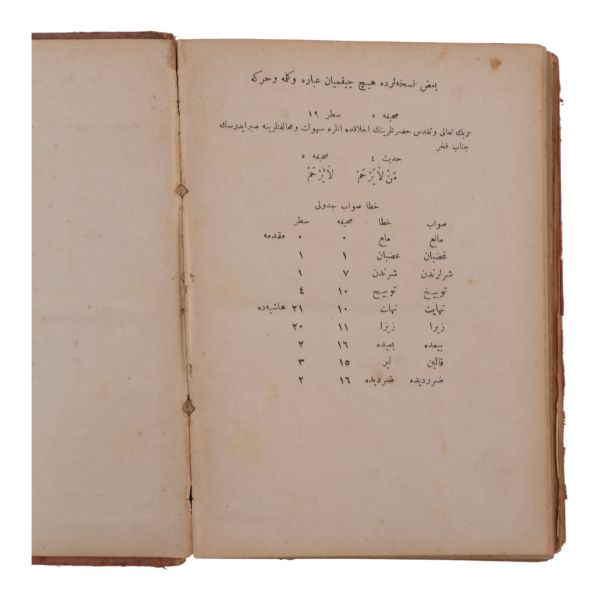 بعض نسخه‌لرده هیچ چیقمیان عباره وكلمه وحركه
صحیفه ٥ سطر ١٩
وبك تعالی وتقدس حضرتلرینك اخلاقده انلره سهولت ومخالفتلرینه صبر ایدوسك
جناب فخر
حدیث ٤ صحیفه ٥
مَنْ لَا يَرْحَمْ لَا يُرْحَمْ
خطا صواب جدولی
صواب خطا صحیفه سطر
مانع مایع ٠ ٠ مقدمه
غضبان عضبان ١ ١
شرلرندن شرندن ٧ ١
توبیخ توبیح ١٠ ٤
نهایت نهات ١٠ ٢١ حاشیه‌ده
زیرا زیزا ١١ ٢٠
بیعده بعیده ١٦ ٢
قالین لیر ١٥ ٣
ضرردیده ضردیده ١٦ ٢